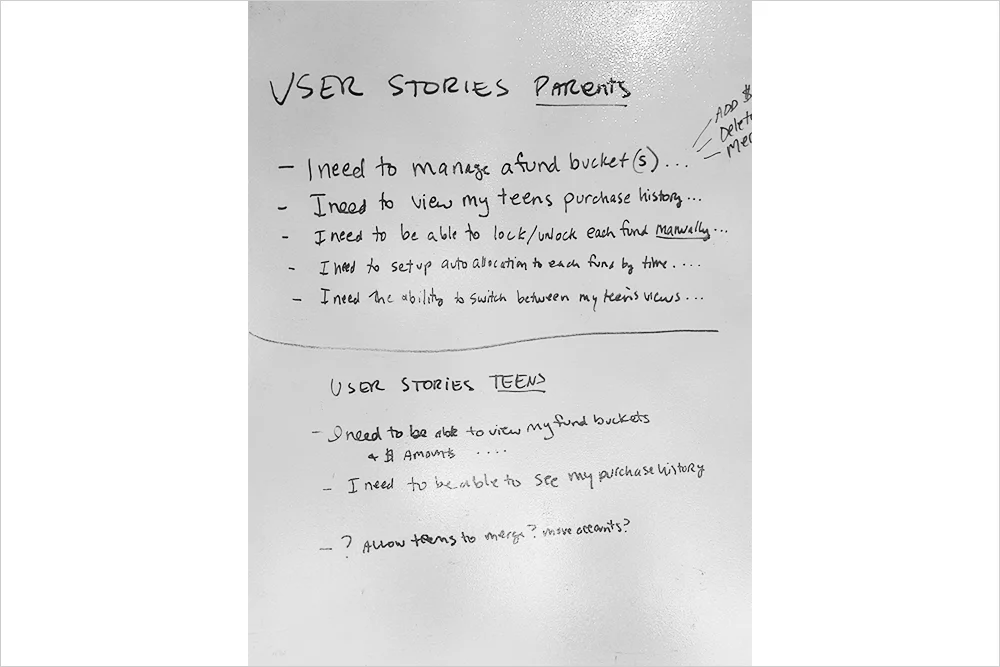 USER STORIES PARENTS
ADD $
Delet
Mer
- I need to manage a fund bucket(s)...
- I need to view my teens purchase history...
- I need to be able to lock/unlock each fund manually...
- I need to setup auto allocation to each fund by time....
- I need the ability to switch between my teens views...
USER STORIES TEENS
- I need to be able to view my fund buckets
& $ Amounts ....
- I need to be able to see my purchase history
- ? Allow teens to merge? move accounts?